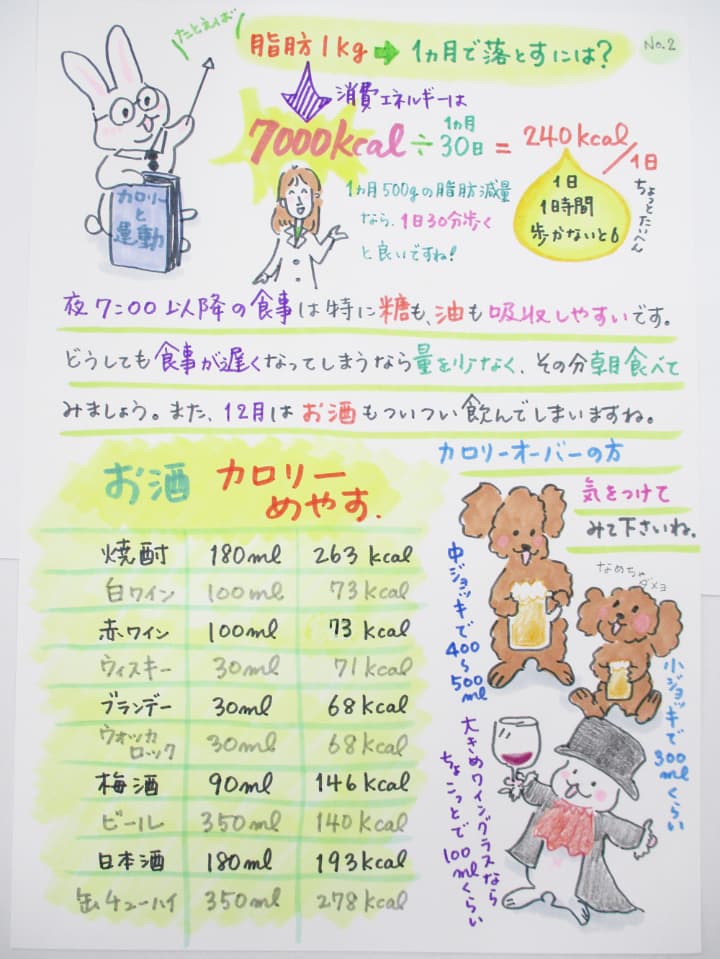 たとえば
脂肪1kg➡1ヵ月で落とすには?
No.2
消費エネルギーは
7000kcal÷1ヵ月30日=240kcal/1日
ちょっとたいへん
1日
1時間
歩かないと6
カロリーと
運動
1ヵ月500gの脂肪減量
なら、1日30分歩く
と良いですね!
夜7:00以降の食事は特に糖も、油も吸収しやすいです。
どうしても食事が遅くなってしまうなら量を少なく、その分朝食べて
みましょう。また、12月はお酒もついつい飲んでしまいますね。
カロリーオーバーの方
気をつけて
みて下さいね。
お酒 カロリー
めやす.
焼酎 180ml 263kcal
白ワイン 100ml 73kcal
赤ワイン 100ml 73kcal
ウィスキー 30ml 71kcal
ブランデー 30ml 68kcal
ウォッカ
ロック 30ml 68kcal
梅酒 90ml 146kcal
ビール 350ml 140kcal
日本酒 180ml 193kcal
缶チューハイ 350ml 278kcal
中ジョッキで400~500ml
なめちゃ
ダメョ
小ジョッキで300mlくらい
大きめワイングラスなら
ちょこっとで100mlくらい